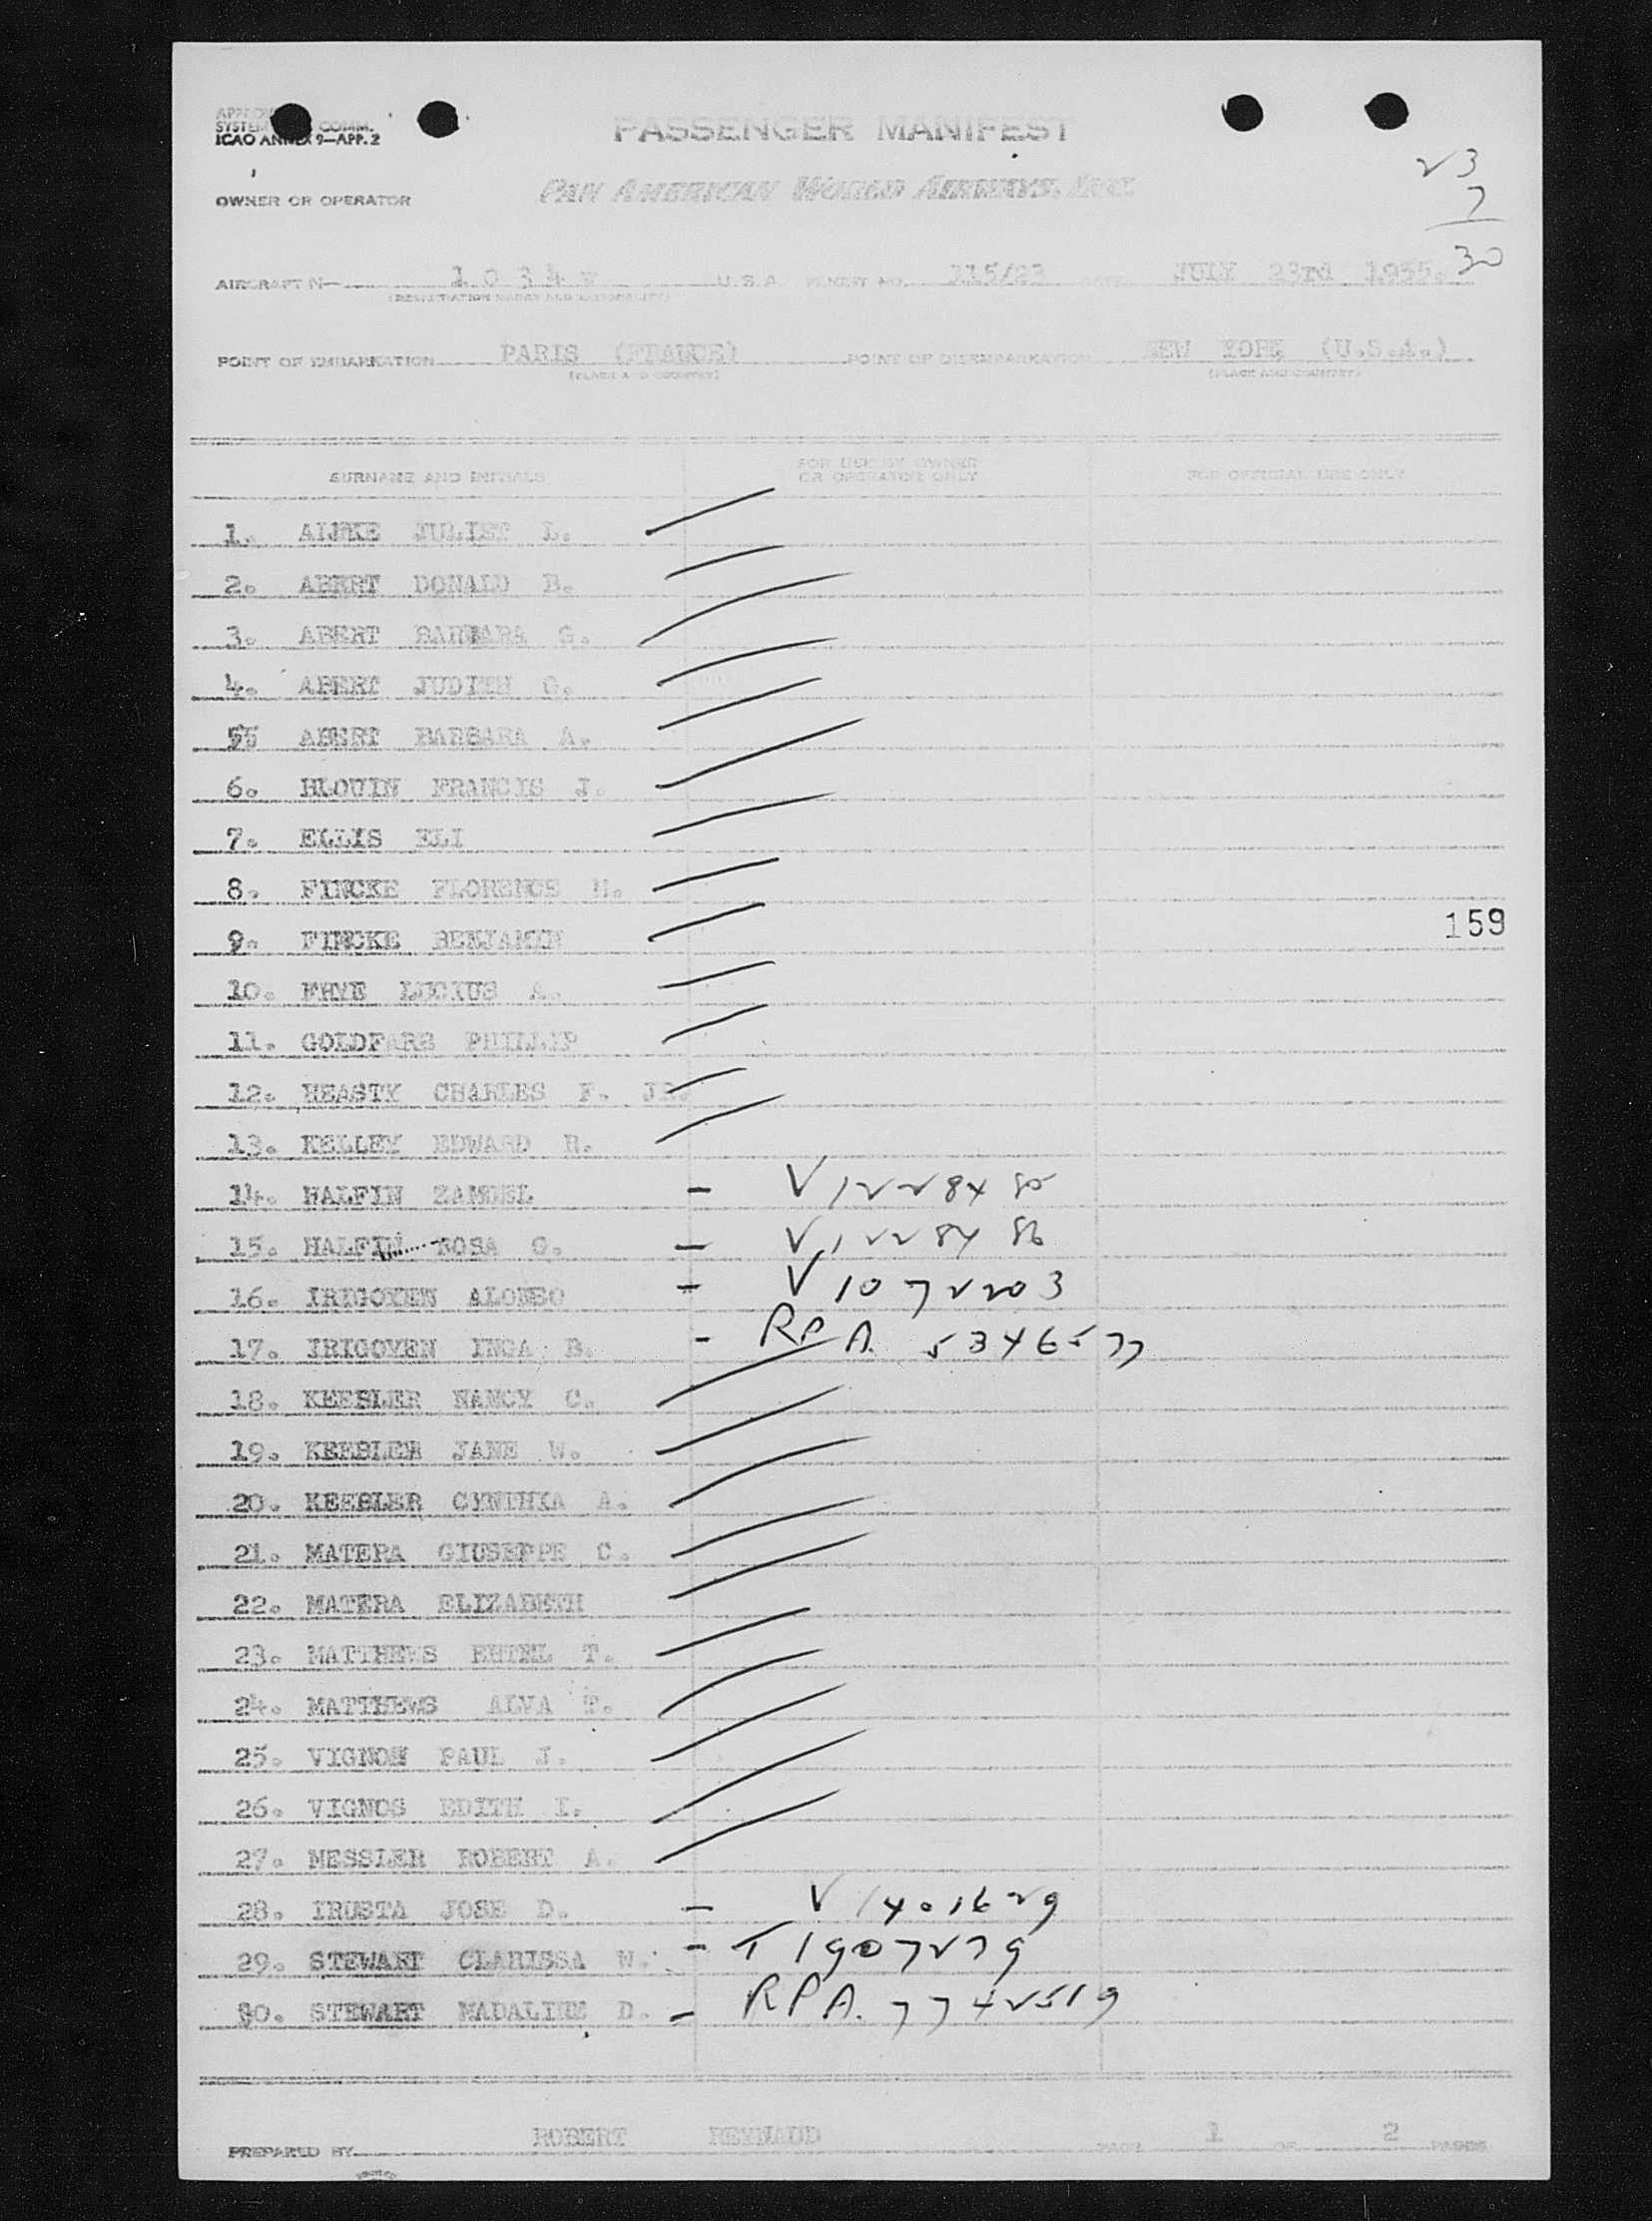 ICAO ANNEX 9—APP. 2
PASSENGER MANIFEST
OWNER OR OPERATOR
PAN AMERICAN WORLD AIRWAYS, INC.
23
7
30
AIRCRAFT N— 1 0 3 4 V U.S.A. FLIGHT NO. 115/23 DATE JULY 23rd 1955.
(REGISTRATION MARKS AND NATIONALITY)
POINT OF EMBARKATION PARIS (FRANCE) POINT OF DISEMBARKATION NEW YORK (U.S.A.)
(PLACE AND COUNTRY) (PLACE AND COUNTRY)
SURNAME AND INITIALS FOR USE BY OWNER OR OPERATOR ONLY FOR OFFICIAL USE ONLY
1. JULIET L.
2. ABERT DONALD B.
3. ABERT BARBARA G.
4. ABERT JUDITH G.
5 ABERT BARBARA A.
6. BLOUIN FRANCIS J.
7. ELLIS ELI
8. FINCKE FLORENCE H.
9. FINCKE BENJAMIN
159
10. FRYE LUCIUS A.
11. GOLDFARB PHILLIP
12. HEASTY CHARLES F. JR.
13. KELLEY EDWARD H.
14. HALFIN ZAMUEL - V1228485
15. HALFIN ROSA G. - V1228486
16. IRIGOYEN ALONSO - V1072203
17. IRIGOYEN INGA B. - RPA 5346577
18. KEEBLER NANCY C.
19. KEEBLER JANE W.
20. KEEBLER CYNTHIA A.
21. MATERA GIUSEPPE C.
22. MATERA ELIZABETH
23. MATTHEWS EHTEL T.
24. MATTHEWS ALVA T.
25. VIGNOS PAUL J.
26. VIGNOS EDITH I.
27. MESSLER ROBERT A.
28. IRUSTA JOSE D. - V1401629
29. STEWART CLARISSA W. - T1907279
30. STEWART MADALINE D. - RPA. 7742519
PREPARED BY ROBERT REYNAUD PAGE 1 OF 2 PAGES